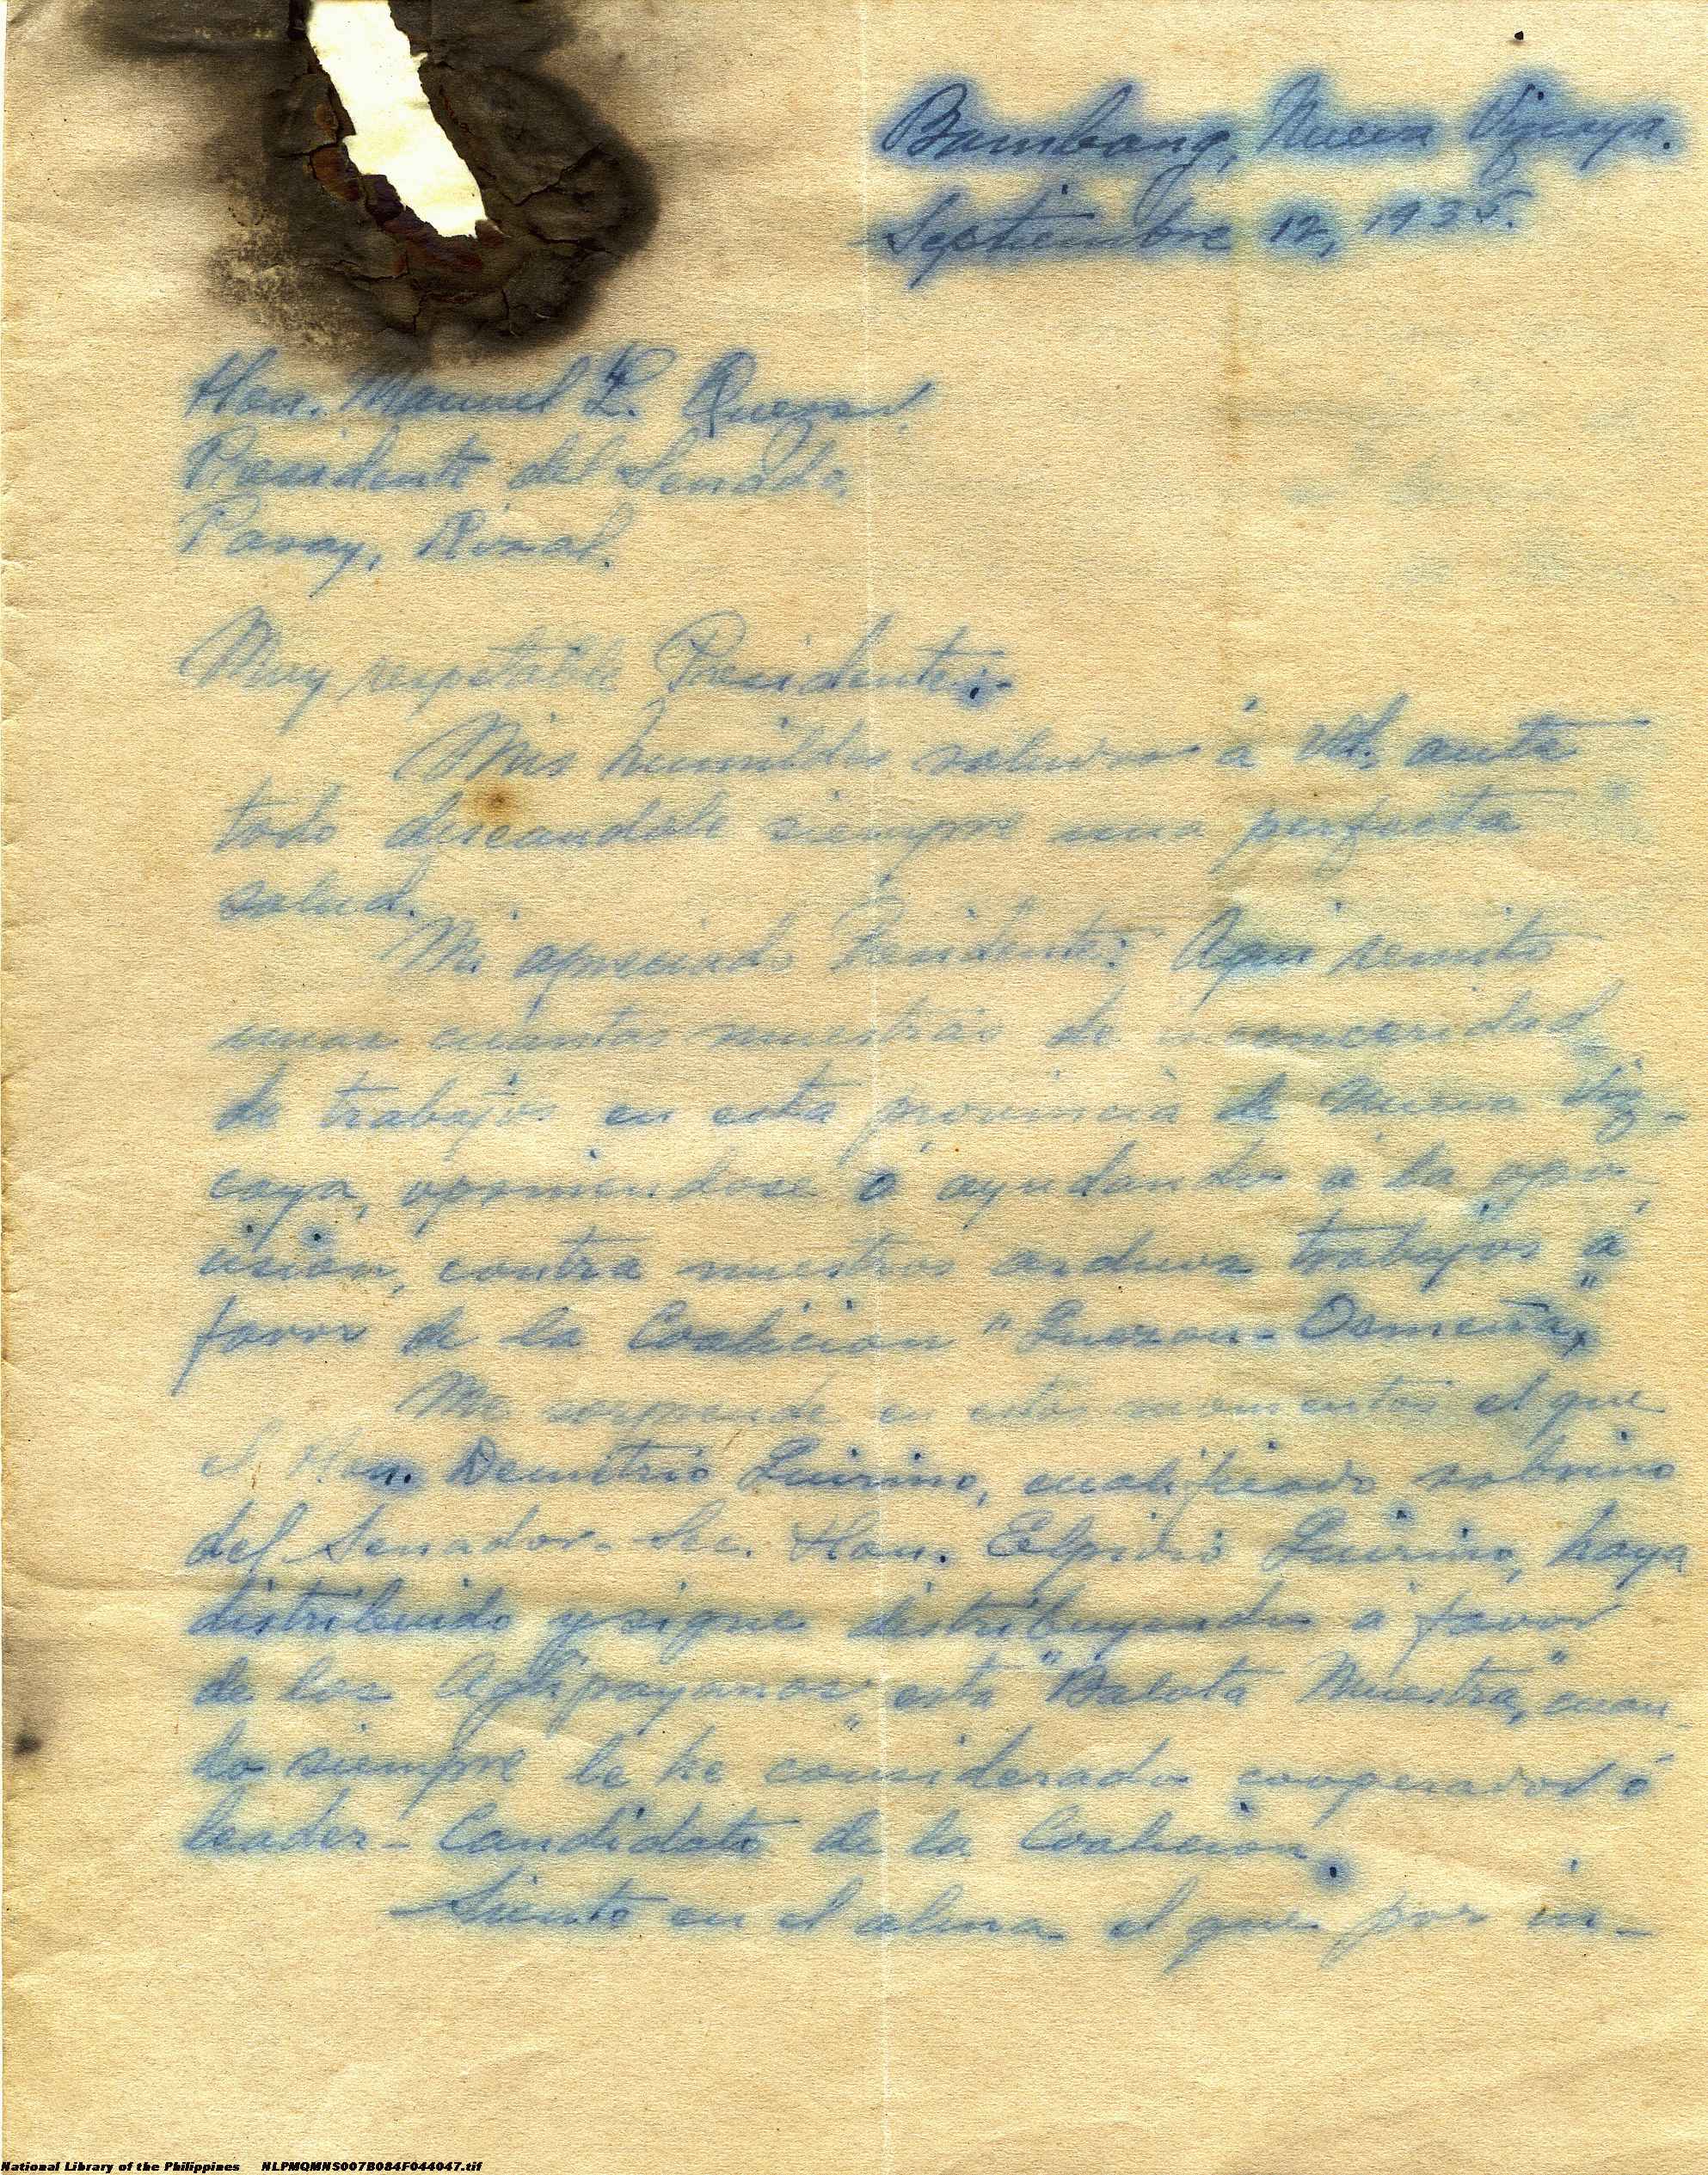 Bambang, Nueva Vizcaya.
Septiembre 12, 1935.
Hon. Manuel L. Quezon.
Presidente del Senado,
Pasay, Rizal.
Muy respetable Presidente:-
Mis humildes saludos á Vd. ante
todo deseandole siempre una perfecta
salud.
Mi apreciado Presidente: Aqui remito
unas cuantas muestras de insinceridad
de trabajos en esta provincia de Nueva Viz-
caya, oponiendose ó ayudando á la opo-
sición, contra nuestros arduos trabajos á
favor de la Coalicion "Quezon-Osmeña"
Me sorprende en estos momentos el que
el Hon. Demetrio Quirino, cualificado sobrino
del Senador-Sec. Hon. Elpidio Quirino, haya
distribuido y sigue distribuyendo á favor
de los Aglipayanos esta "Balota Muestra", cuan-
do siempre le he considerado cooperador ó
leader-Candidato de la Coalicion.
Siento en el alma el que por in-
National Library of the Philippines NLPMQMNS007B084F044047.tif